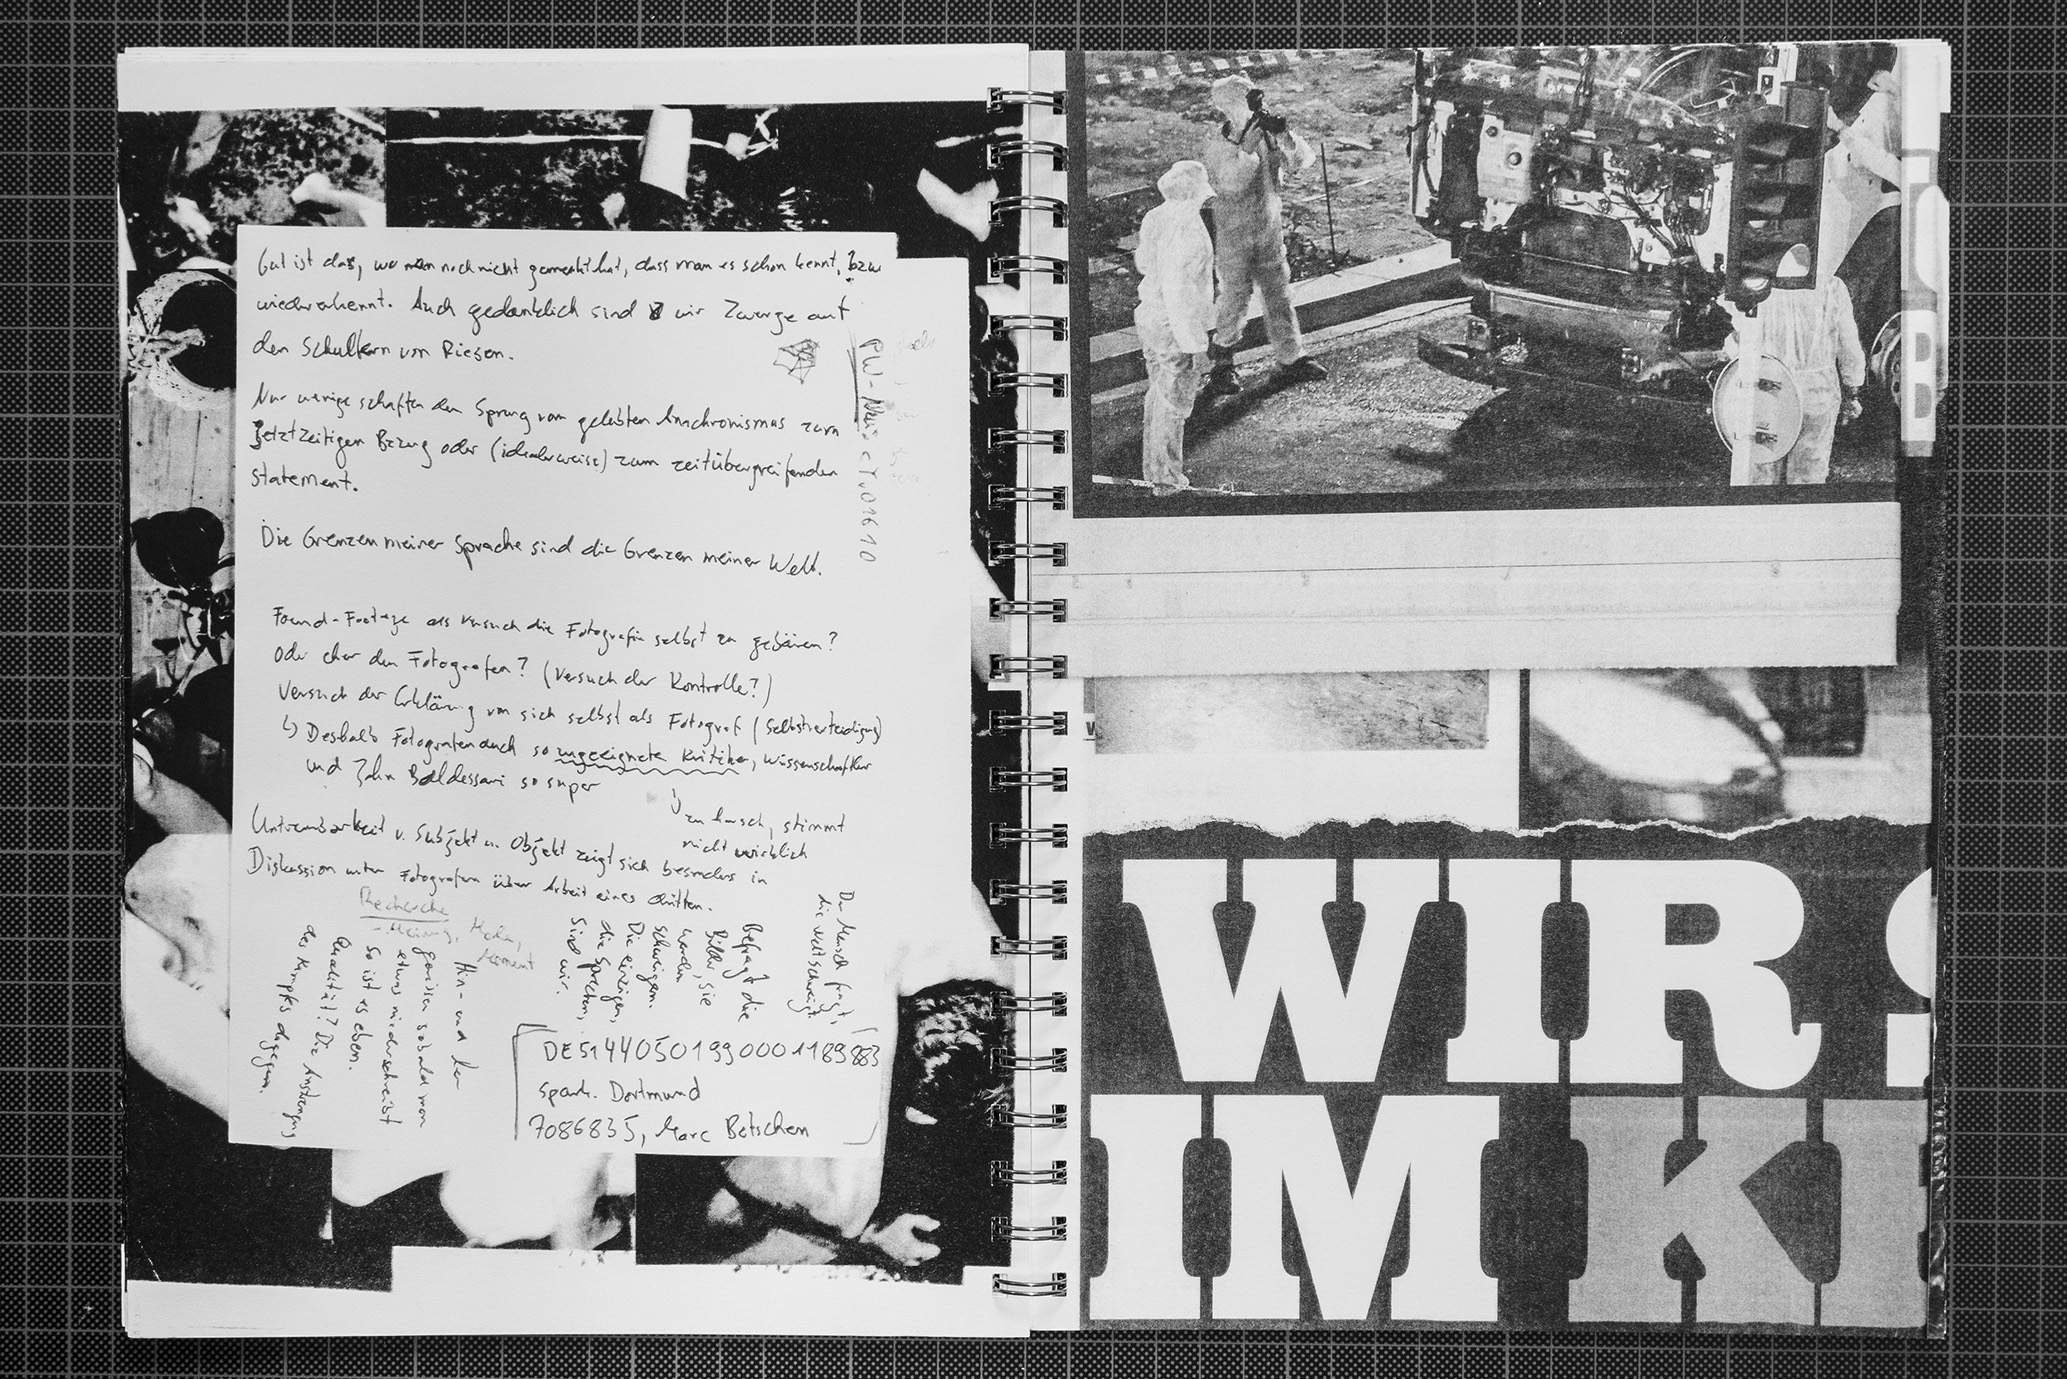 Gut ist das, wo man noch nicht gemerkt hat, dass man es schon kennt, bzw
wiedererkennt. Auch gedanklich sind wir Zwerge auf
den Schultern von Riesen.
Nur wenige schaffen den Sprung vom gelebten Anachronismus zum
jetztzeitigen Bezug oder (idealerweise) zum zeitübergreifenden
statement.
Die Grenzen meiner Sprache sind die Grenzen meiner Welt.
Found-Footage als Versuch die Fotografie selbst zu gebären?
Oder eher den Fotografen? (Versuch der Kontrolle?)
Versuch der Erklärung von sich selbst als Fotograf (Selbstverteidigung)
↳ Deshalb Fotografen auch so ungeeignete Kritiker, Wissenschaftler
und John Baldessari so super
↳ zu harsch, stimmt
nicht wirklich
Untrennbarkeit v. Subjekt u. Objekt zeigt sich besonders in
Diskussion unter Fotografen über Arbeit eines dritten.
Recherche
Moment
Hin- und her
gerissen sobald man
etwas niederschreibt
So ist es eben.
Qualität? Die Anstrengung
des Kampfes dagegen.
Befragt die
Bilder, sie
werden
schweigen.
Die einzigen,
die sprechen,
sind wir.
Der Mensch fragt,
die Welt schweigt.
Spark. Dortmund
7086835, Marc Botschen
PW-
WIR
IM K
B